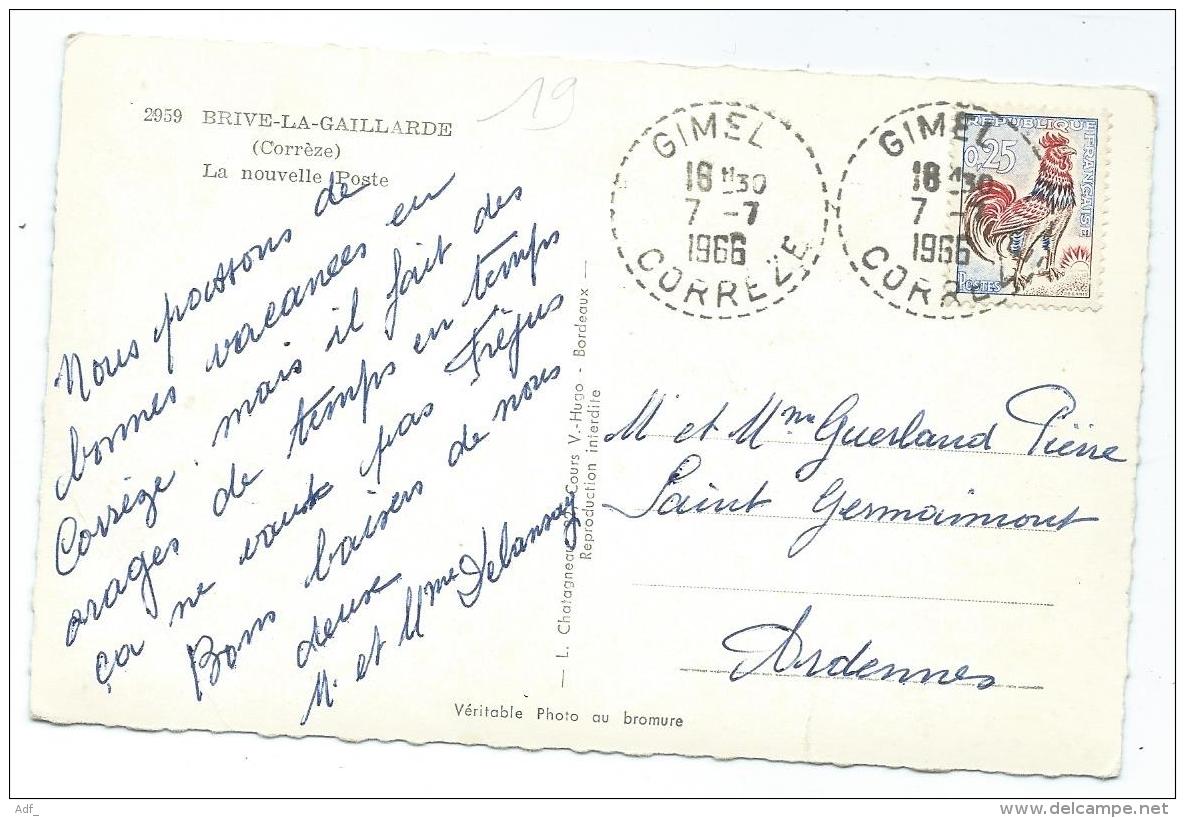 19
2959 BRIVE-LA-GAILLARDE
(Corrèze)
La nouvelle Poste
Nous passons de
bonnes vacances en
Corrèze mais il fait des
orages de temps en temps
ça ne vaut pas Fréjus
Bons baisers de nous
deux
M. et Mme Delansay
— L. Chatagneau, Cours V.-Hugo - Bordeaux —
Reproduction interdite
Véritable Photo au bromure
GIMEL
18 H 30
7 -7
1966
CORRÈZE
GIMEL
18 H 30
7 -7
1966
CORRÈZE
REPUBLIQUE FRANÇAISE
0,25
POSTES
M et Mme Guerland Pierre
Saint Germainmont
Ardennes
Adf_
delcampe.net